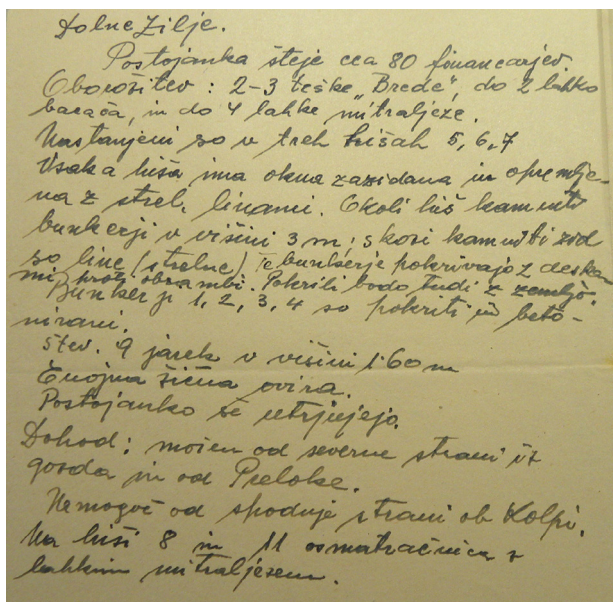 Dolne Žilje.
Postojanka šteje cca 80 financarjev.
Oborožitev: 2-3 teške „Brede", do 2 lahka
bacača, in do 4 lahke mitraljeze.
Nastanjeni so v treh hišah 5, 6, 7
Vsaka hiša ima okna zazidana in opremlje-
na z strel. linami. Okoli hiš kamniti
bunkerji v višini 3 m; skozi kamniti zid
so line (strelne) te bunkerje pokrivajo z deska
mi proti obrambi. Pokrili bodo tudi z zemljo.
Bunkerji 1, 2, 3, 4 so pokriti in beto-
nirani.
Štev. 9 jarek v višini 1·60 m
Enojna žična ovira.
Postojanko še utrjujejo.
Dohod: možen od severne strani iz
gozda in od Preloke.
Nemogoč od spodnje strani ob Kolpi.
Na hiši 8 in 11 osmatračnica z
lahkim mitraljezem.